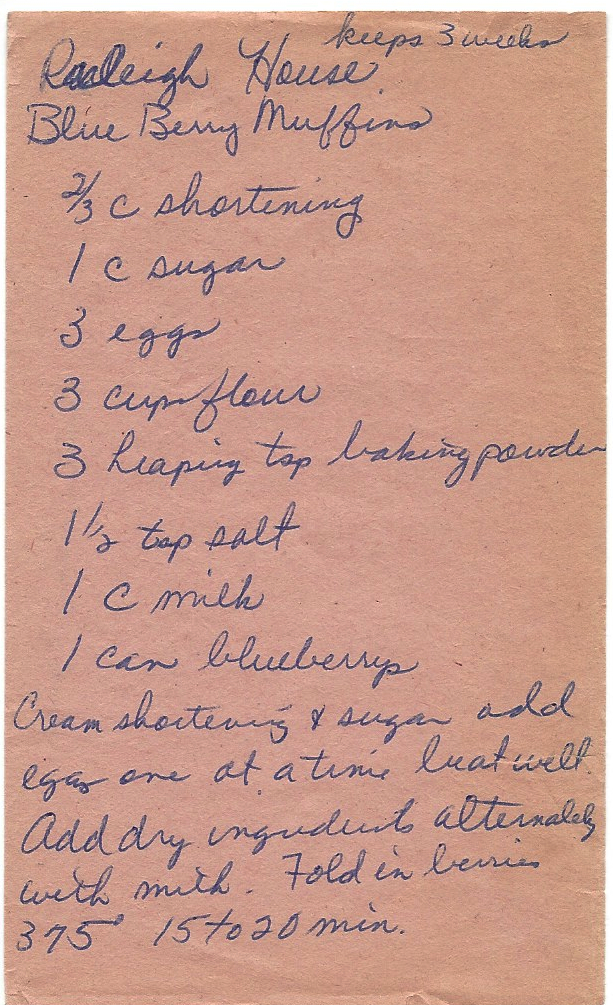 keeps 3 weeks
Raleigh House
Blue Berry Muffins
2/3 c shortening
1 c sugar
3 eggs
3 cups flour
3 heaping tsp baking powder
1 1/2 tsp salt
1 c milk
1 can blueberrys
Cream shortening & sugar add
eggs one at a time beat well.
Add dry ingredients alternately
with milk. Fold in berries
375° 15 to 20 min.